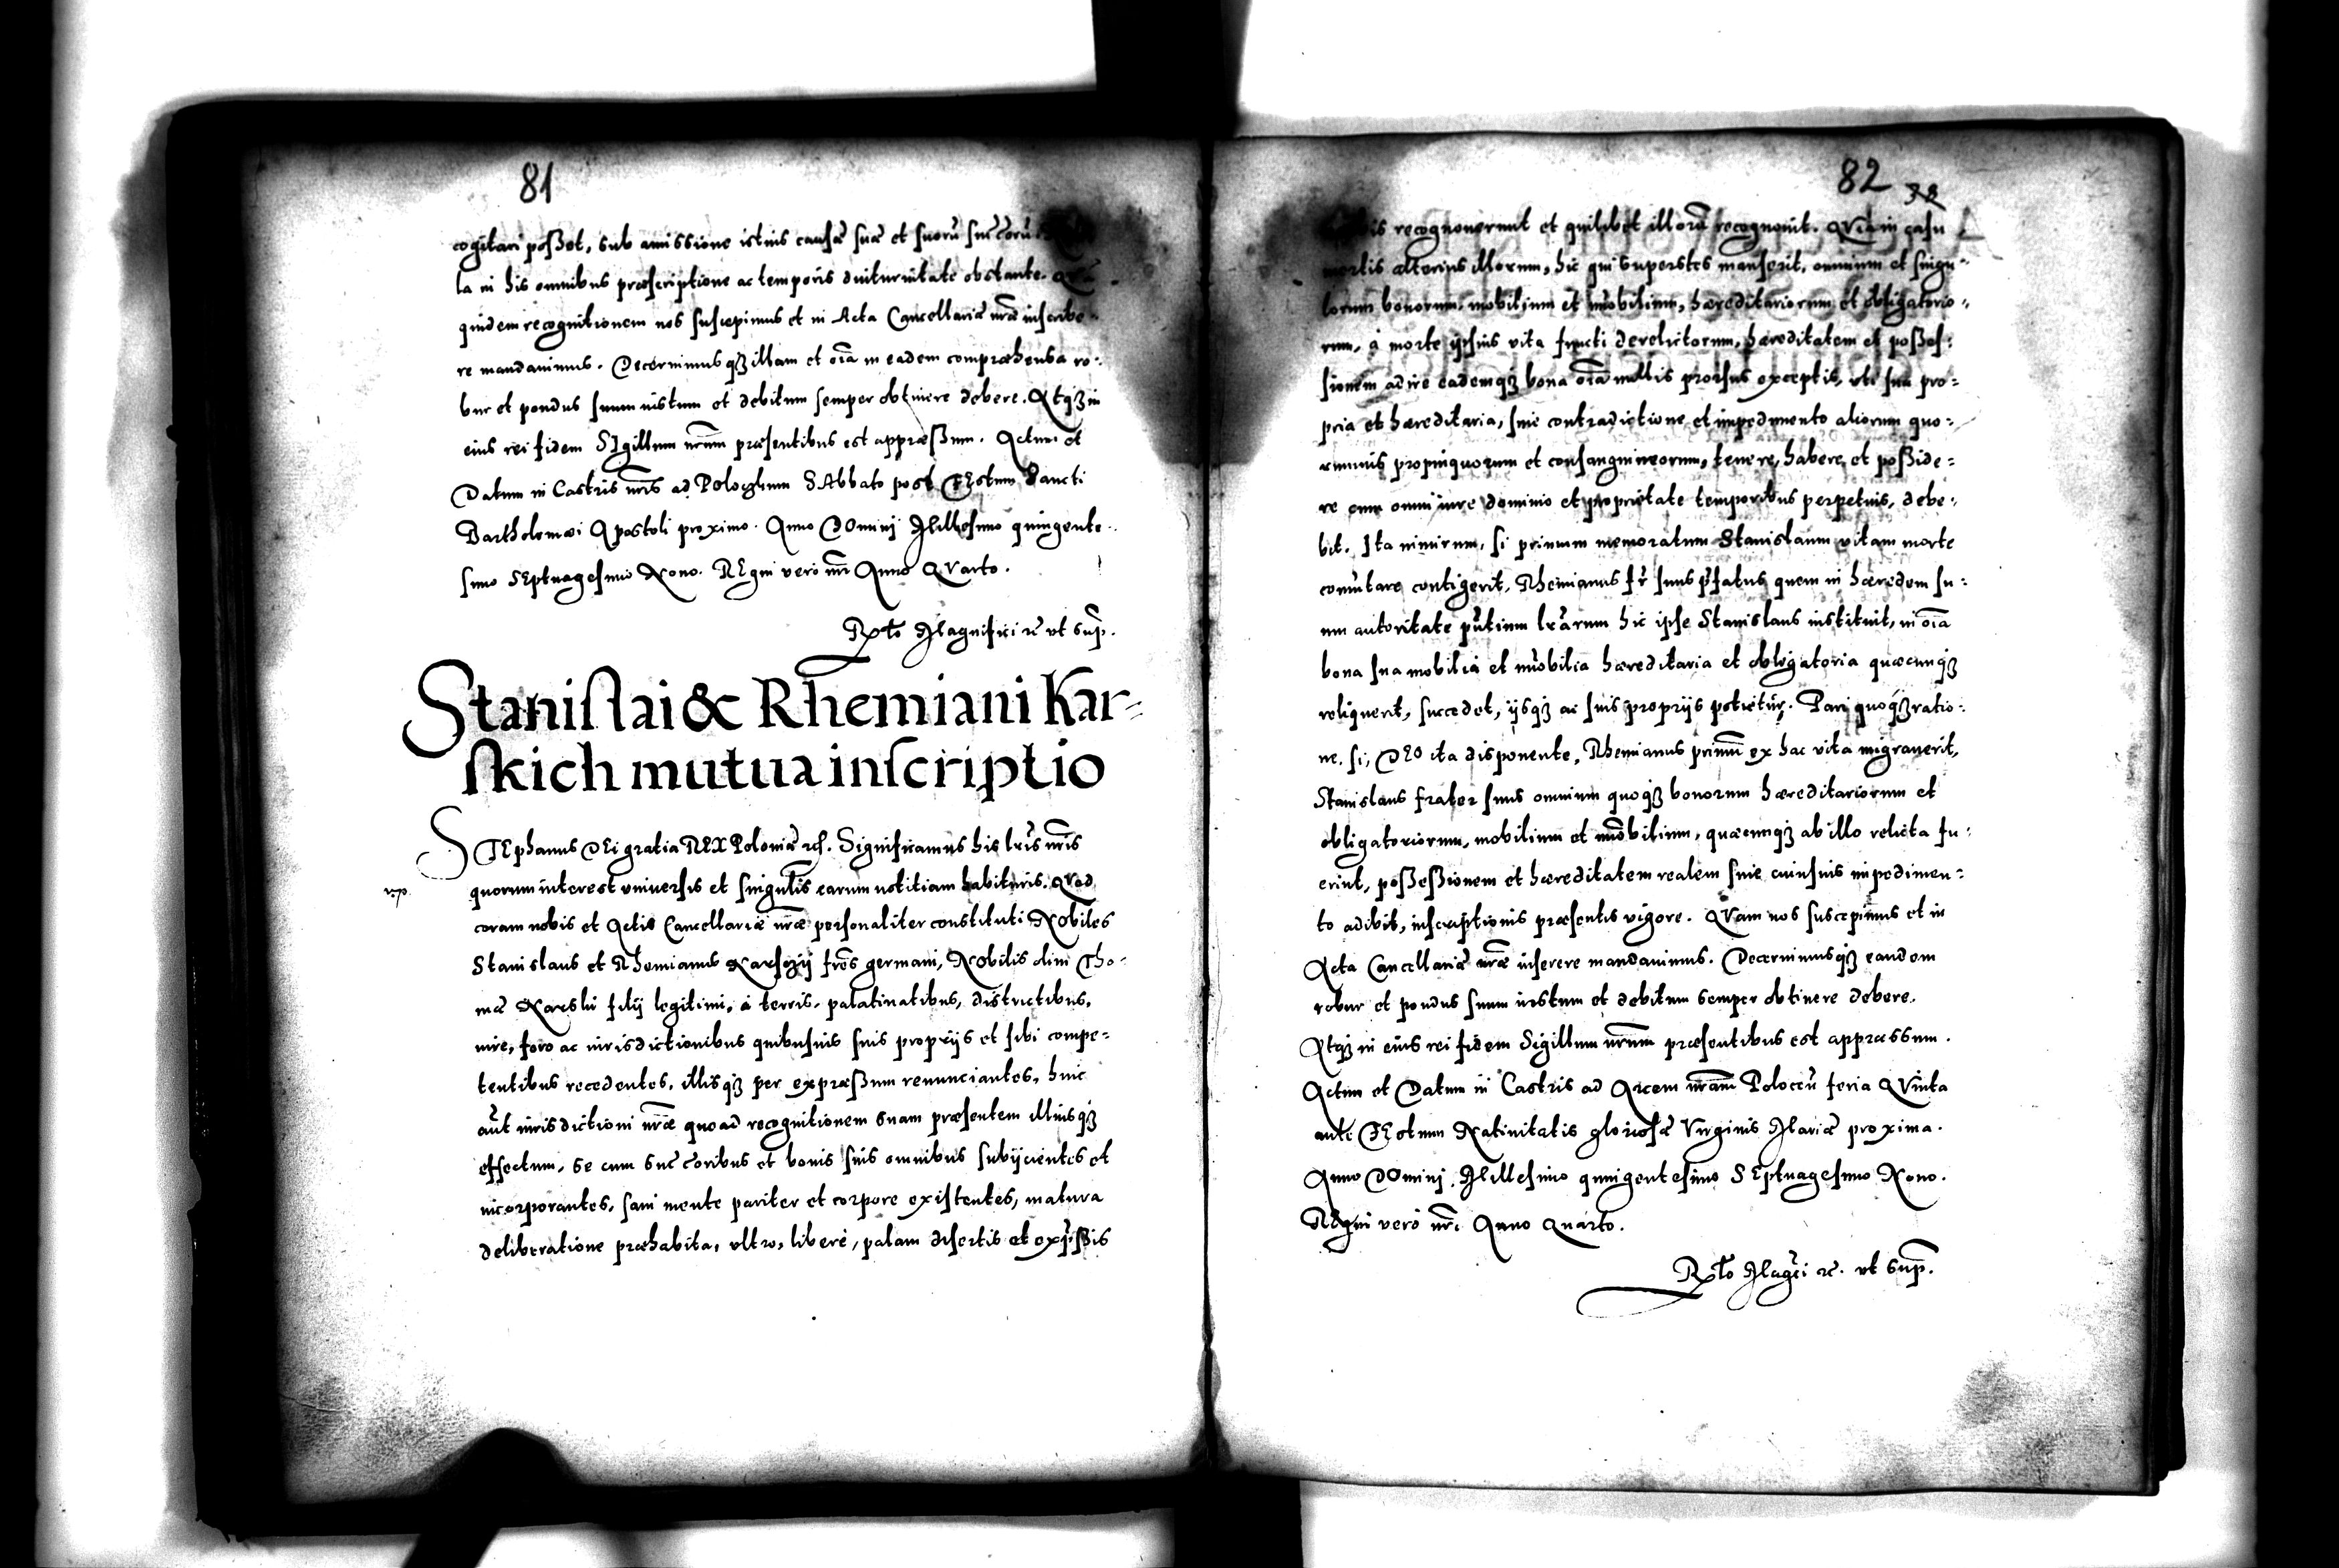 81
cogitari possét, sub amissione istius causæ suæ et suorũ succorũ
la in his omnibus præscriptione ac temporis diuturnitate obstante.
quidem recognitionem nos suscepimus et in Acta Cancellariæ nr̃æ inscribe
re mandauimus. Decernimusqȝ illam et oĩa in eadem compræhensa ro:
bur et pondus suum iustum et debitum semper obtinere debere. Atqȝ in
eius rei fidem SIgillum nrum̃ præsentibus est appræssum. Actum et
Datum in Castris nr̃is ad Polocghum SAbbato post FEstum Sancti
Bartholomæi Apostoli proximo. Anno DOminj Millesimo quingente
simo SEptuagesimo Nono. REgni vero nr̃i Anno QVarto.
Rẽlto Magnifici ꝛc̃ ut sup̃.
Stanislai & Rhemiani Kar=
skich mutua inscriptio
STEphanus DEi gratia REX Poloniæ ꝛcſ. Significamus his lr̃is nr̃is
quorum interest vniuersis et singulis earum notitiam habituris. QVod
coram nobis et Actis Cancellariæ nr̃æ personaliter constituti Nobiles
Stanislaus et Rhemianus Karsczÿ frẽs germani, Nobilis olim Tho-
mæ Karski filÿ legitimi, á terris, palatinatibus, districtibus,
iure, foro ac iurisdictionibus quibusuis suis proprÿs et sibi compe=
tentibus recedentes, illisqȝ per expræssum renunciantes, huic
aũt iurisdictioni nr̃æ quoad recognitionem suam præsentem illiusqȝ
effectum, se cum succ̃oribus et bonis suis omnibus subÿcientes et
incorporantes, sani mente pariter et corpore existentes, matura
deliberatione præhabita, vltro, liberé, palam disertis et exp̃ssis
82 38
is recognouerunt et quilibet illorũ recognouit. QVia in casu
mortis alterius illorum, hic qui superstes manserit, omnium et singu=
lorum bonorum, mobilium et im̃obilium, hæreditariorum et obligatorio=
rum, á morte ipsius vita functi derelictorum, hæreditatem et posses:
sionem adire eademqȝ bona oĩa nullis prorsus exceptis, uti sua pro=
pria et hæreditaria, sine contradictione et impedimento aliorum quo=
rumuis propinquorum et consanguineorum, tenere, habere et posside=
re cum omni iure dominio et proprietate temporibus perpetuis, debe=
bit. Ita nimirum, si primum memoratum Stanislaum vitam morte
com̃utare contigerit, Rhemianus fr̃ suus p̃fatus quem in hæredem su=
um autoritate pñtium lr̃arum hic ipse Stanislaus instituit, in oĩa
bona sua mobilia et im̃obilia hæreditaria et obligatoria quæcunqȝ
reliquerit, succedet, ÿsqȝ ac suis proprÿs potietũr. Pari quoqȝ ratio:
ne, si, DEO ita disponente, Rhemianus primũm ex hac vita migrauerit,
Stanislaus frater suus omnium quoqȝ bonorum hæreditariorum et
obligatoriorum, mobilium et im̃obilium, quæcunqȝ ab illo relicta fu:
erint, possessionem et hæreditatem realem sine cuiusuis impedimen=
to adibit, inscriptionis præsentis vigore. QVam nos suscepimus et in
Acta Cancellariæ nr̃æ inserere mandauimus. Decernimusqȝ eandem
robur et pondus suum iustum et debitum semper obtinere debere.
Atqȝ in eius rei fidem Sigillum nrũm præsentibus est appræssum.
Actum et Datum in Castris ad Arcem nrãm Polocẽn feria QVinta
ante FEstum Natiuitatis gloriosæ Virginis Mariæ proxima.
Anno DOminj Millesimo quingentesimo SEptuagesimo Nono.
REgni vero nr̃i Anno Quarto.
Rẽlto Mag̃ci ꝛc̃. ut sup̃.